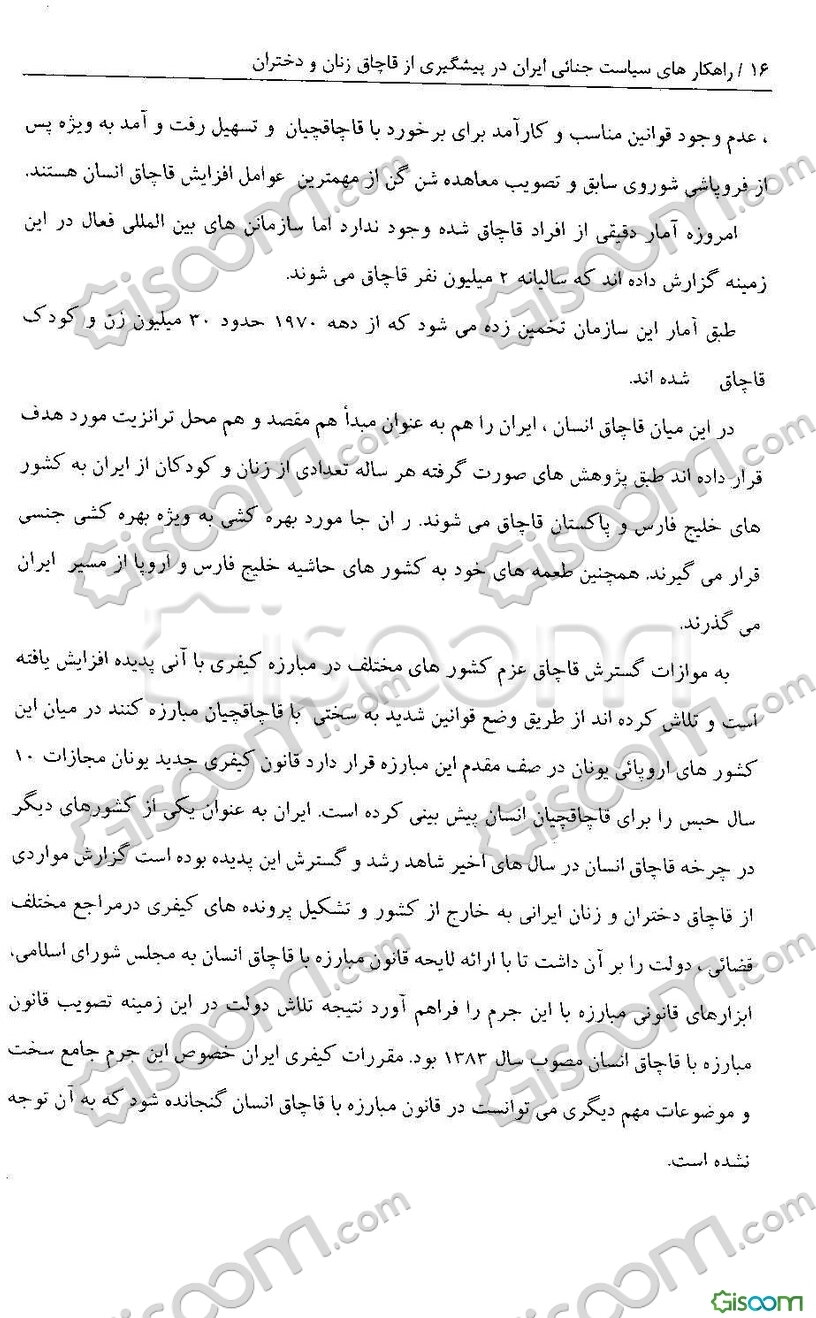 ۱۶ / راهکار های سیاست جنائی ایران در پیشگیری از قاچاق زنان و دختران
، عدم وجود قوانین مناسب و کارآمد برای برخورد با قاچاقچیان و تسهیل رفت و آمد به ویژه پس
از فروپاشی شوروی سابق و تصویب معاهده شن گن از مهمترین عوامل افزایش قاچاق انسان هستند.
امروزه آمار دقیقی از افراد قاچاق شده وجود ندارد اما سازمانن های بین المللی فعال در این
زمینه گزارش داده اند که سالیانه ۲ میلیون نفر قاچاق می شوند.
طبق آمار این سازمان تخمین زده می شود که از دهه ۱۹۷۰ حدود ۳۰ میلیون زن و کودک
قاچاق شده اند.
در این میان قاچاق انسان ، ایران را هم به عنوان مبدأ هم مقصد و هم محل ترانزیت مورد هدف
قرار داده اند طبق پژوهش های صورت گرفته هر ساله تعدادی از زنان و کودکان از ایران به کشور
های خلیج فارس و پاکستان قاچاق می شوند. ر ان جا مورد بهره کشی به ویژه بهره کشی جنسی
قرار می گیرند. همچنین طعمه های خود به کشور های حاشیه خلیج فارس و اروپا از مسیر ایران
می گذرند.
به موازات گسترش قاچاق عزم کشور های مختلف در مبارزه کیفری با آنی پدیده افزایش یافته
است و تلاش کرده اند از طریق وضع قوانین شدید به سختی با قاچاقچیان مبارزه کنند در میان این
کشور های اروپائی یونان در صف مقدم این مبارزه قرار دارد قانون کیفری جدید یونان مجازات ۱۰
سال حبس را برای قاچاقچیان انسان پیش بینی کرده است. ایران به عنوان یکی از کشورهای دیگر
در چرخه قاچاق انسان در سال های اخیر شاهد رشد و گسترش این پدیده بوده است گزارش مواردی
از قاچاق دختران و زنان ایرانی به خارج از کشور و تشکیل پرونده های کیفری درمراجع مختلف
قضائی ، دولت را بر آن داشت تا با ارائه لایحه قانون مبارزه با قاچاق انسان به مجلس شورای اسلامی،
ابزارهای قانونی مبارزه با این جرم را فراهم آورد نتیجه تلاش دولت در این زمینه تصویب قانون
مبارزه با قاچاق انسان مصوب سال ۱۳۸۳ بود. مقررات کیفری ایران خصوص این جرم جامع سخت
و موضوعات مهم دیگری می توانست در قانون مبارزه با قاچاق انسان گنجانده شود که به آن توجه
نشده است.
Gisoom